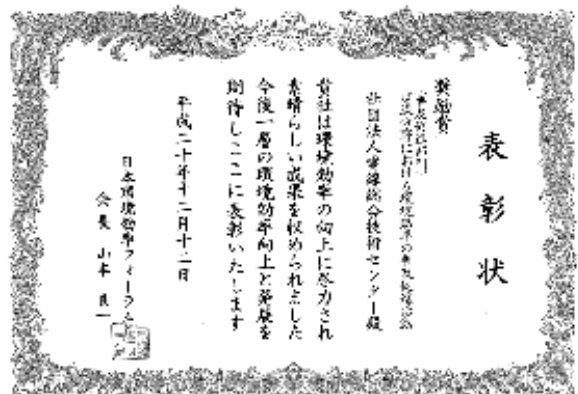 表彰状
奨励賞
社団法人電線総合技術センター殿
貴社は環境効率の向上に尽力され
素晴らしい成果を収められました
今後一層の環境効率向上と発展を
期待しここに表彰いたします
平成二十年十二月十二日
日本環境効率フォーラム
会長 山本 良一